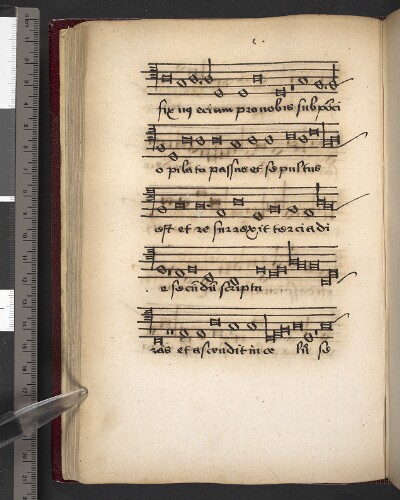 fix us eciam pro nobis sub ponci
o pilato passus et sepultus
est et re surrexit tercia di
e secūdū scriptu
ras et ascendit in ce lū se